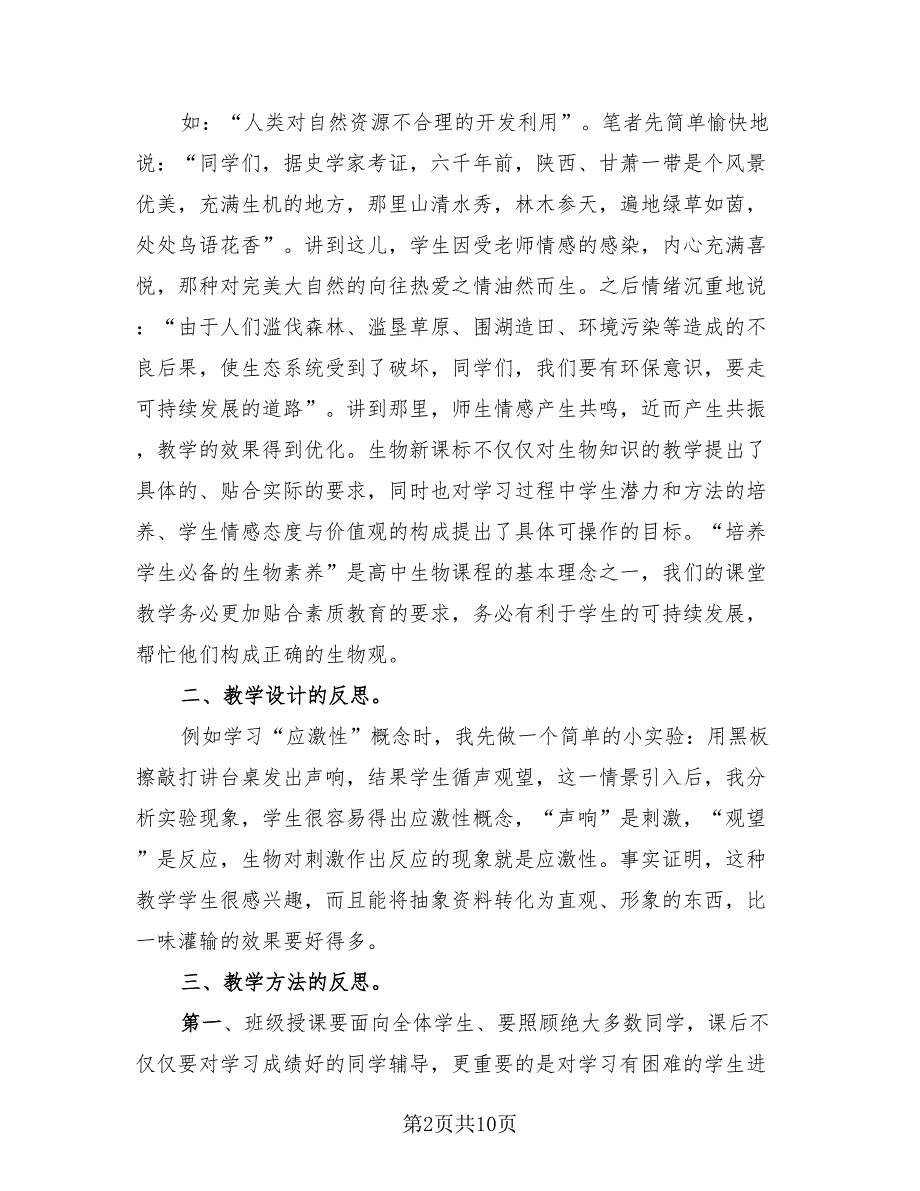 如：“人类对自然资源不合理的开发利用”。笔者先简单愉快地
说：“同学们，据史学家考证，六千年前，陕西、甘萧一带是个风景
优美，充满生机的地方，那里山清水秀，林木参天，遍地绿草如茵，
处处鸟语花香”。讲到这儿，学生因受老师情感的感染，内心充满喜
悦，那种对完美大自然的向往热爱之情油然而生。之后情绪沉重地说
：“由于人们滥伐森林、滥垦草原、围湖造田、环境污染等造成的不
良后果，使生态系统受到了破坏，同学们，我们要有环保意识，要走
可持续发展的道路”。讲到那里，师生情感产生共鸣，近而产生共振
，教学的效果得到优化。生物新课标不仅仅对生物知识的教学提出了
具体的、贴合实际的要求，同时也对学习过程中学生潜力和方法的培
养、学生情感态度与价值观的构成提出了具体可操作的目标。“培养
学生必备的生物素养”是高中生物课程的基本理念之一，我们的课堂
教学务必更加贴合素质教育的要求，务必有利于学生的可持续发展，
帮忙他们构成正确的生物观。
二、教学设计的反思。
例如学习“应激性”概念时，我先做一个简单的小实验：用黑板
擦敲打讲台桌发出声响，结果学生循声观望，这一情景引入后，我分
析实验现象，学生很容易得出应激性概念，“声响”是刺激，“观望
”是反应，生物对刺激作出反应的现象就是应激性。事实证明，这种
教学学生很感兴趣，而且能将抽象资料转化为直观、形象的东西，比
一味灌输的效果要好得多。
三、教学方法的反思。
第一、班级授课要面向全体学生、要照顾绝大多数同学，课后不
仅仅要对学习成绩好的同学辅导，更重要的是对学习有困难的学生进
第2页共10页